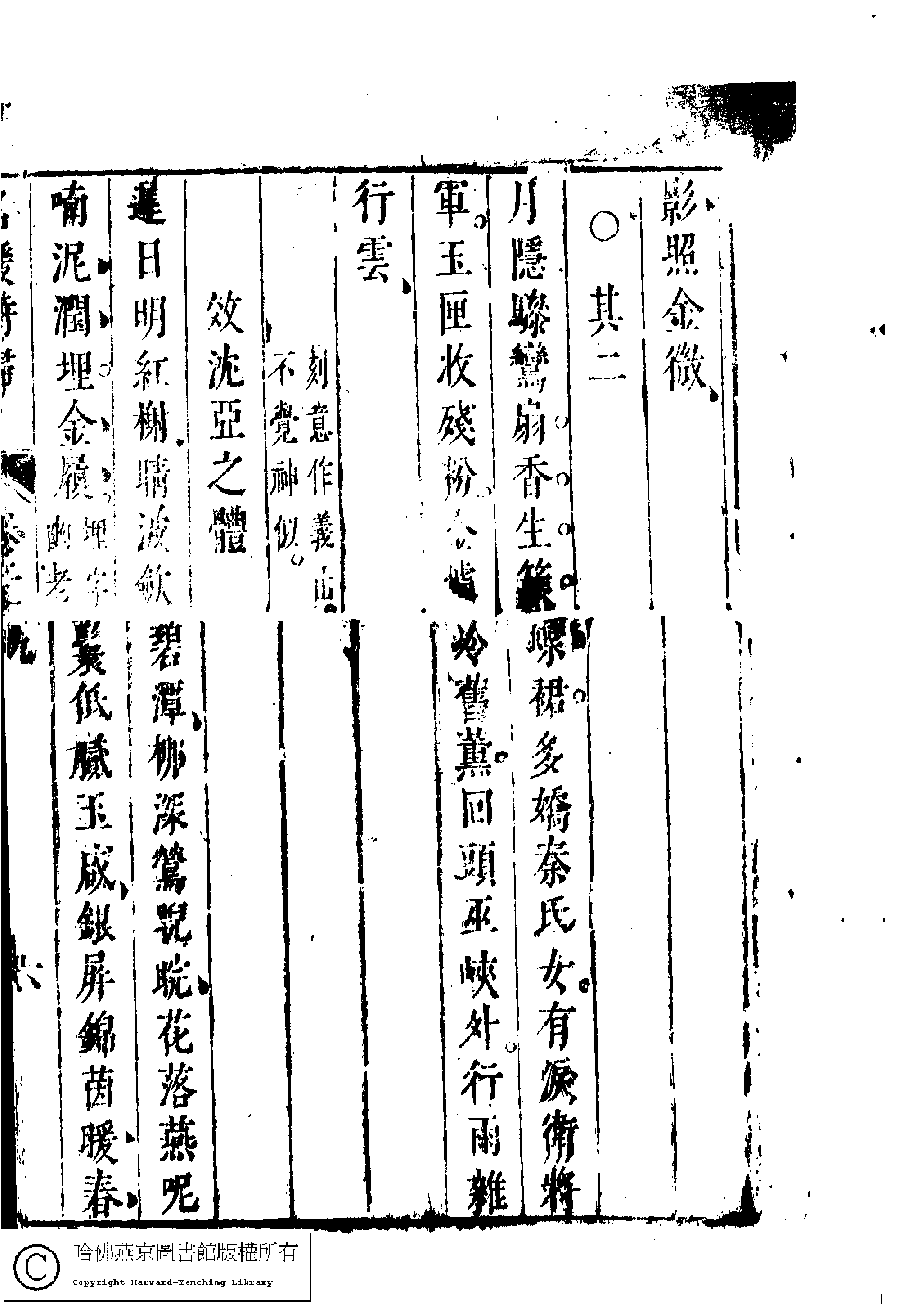 影照金微
○其二
月隱驂鸞扇香生簇蝶裙多嬌秦氏女有淚衛將
軍玉匣收殘粉金爐冷舊薰回頭巫峽外行雨雜
行雲
刻意作義山
不覺神似
效沈亞之體
遲日明紅榭晴波斂碧潭柳深鶯睍睆花落燕呢
喃泥潤埋金屧
埋字
幽老
鬟低膩玉簪銀屏錦茵暖春
名媛詩歸
卷之
六
哈佛燕京圖書館版權所有
Copyright Harvard-Yenching Library